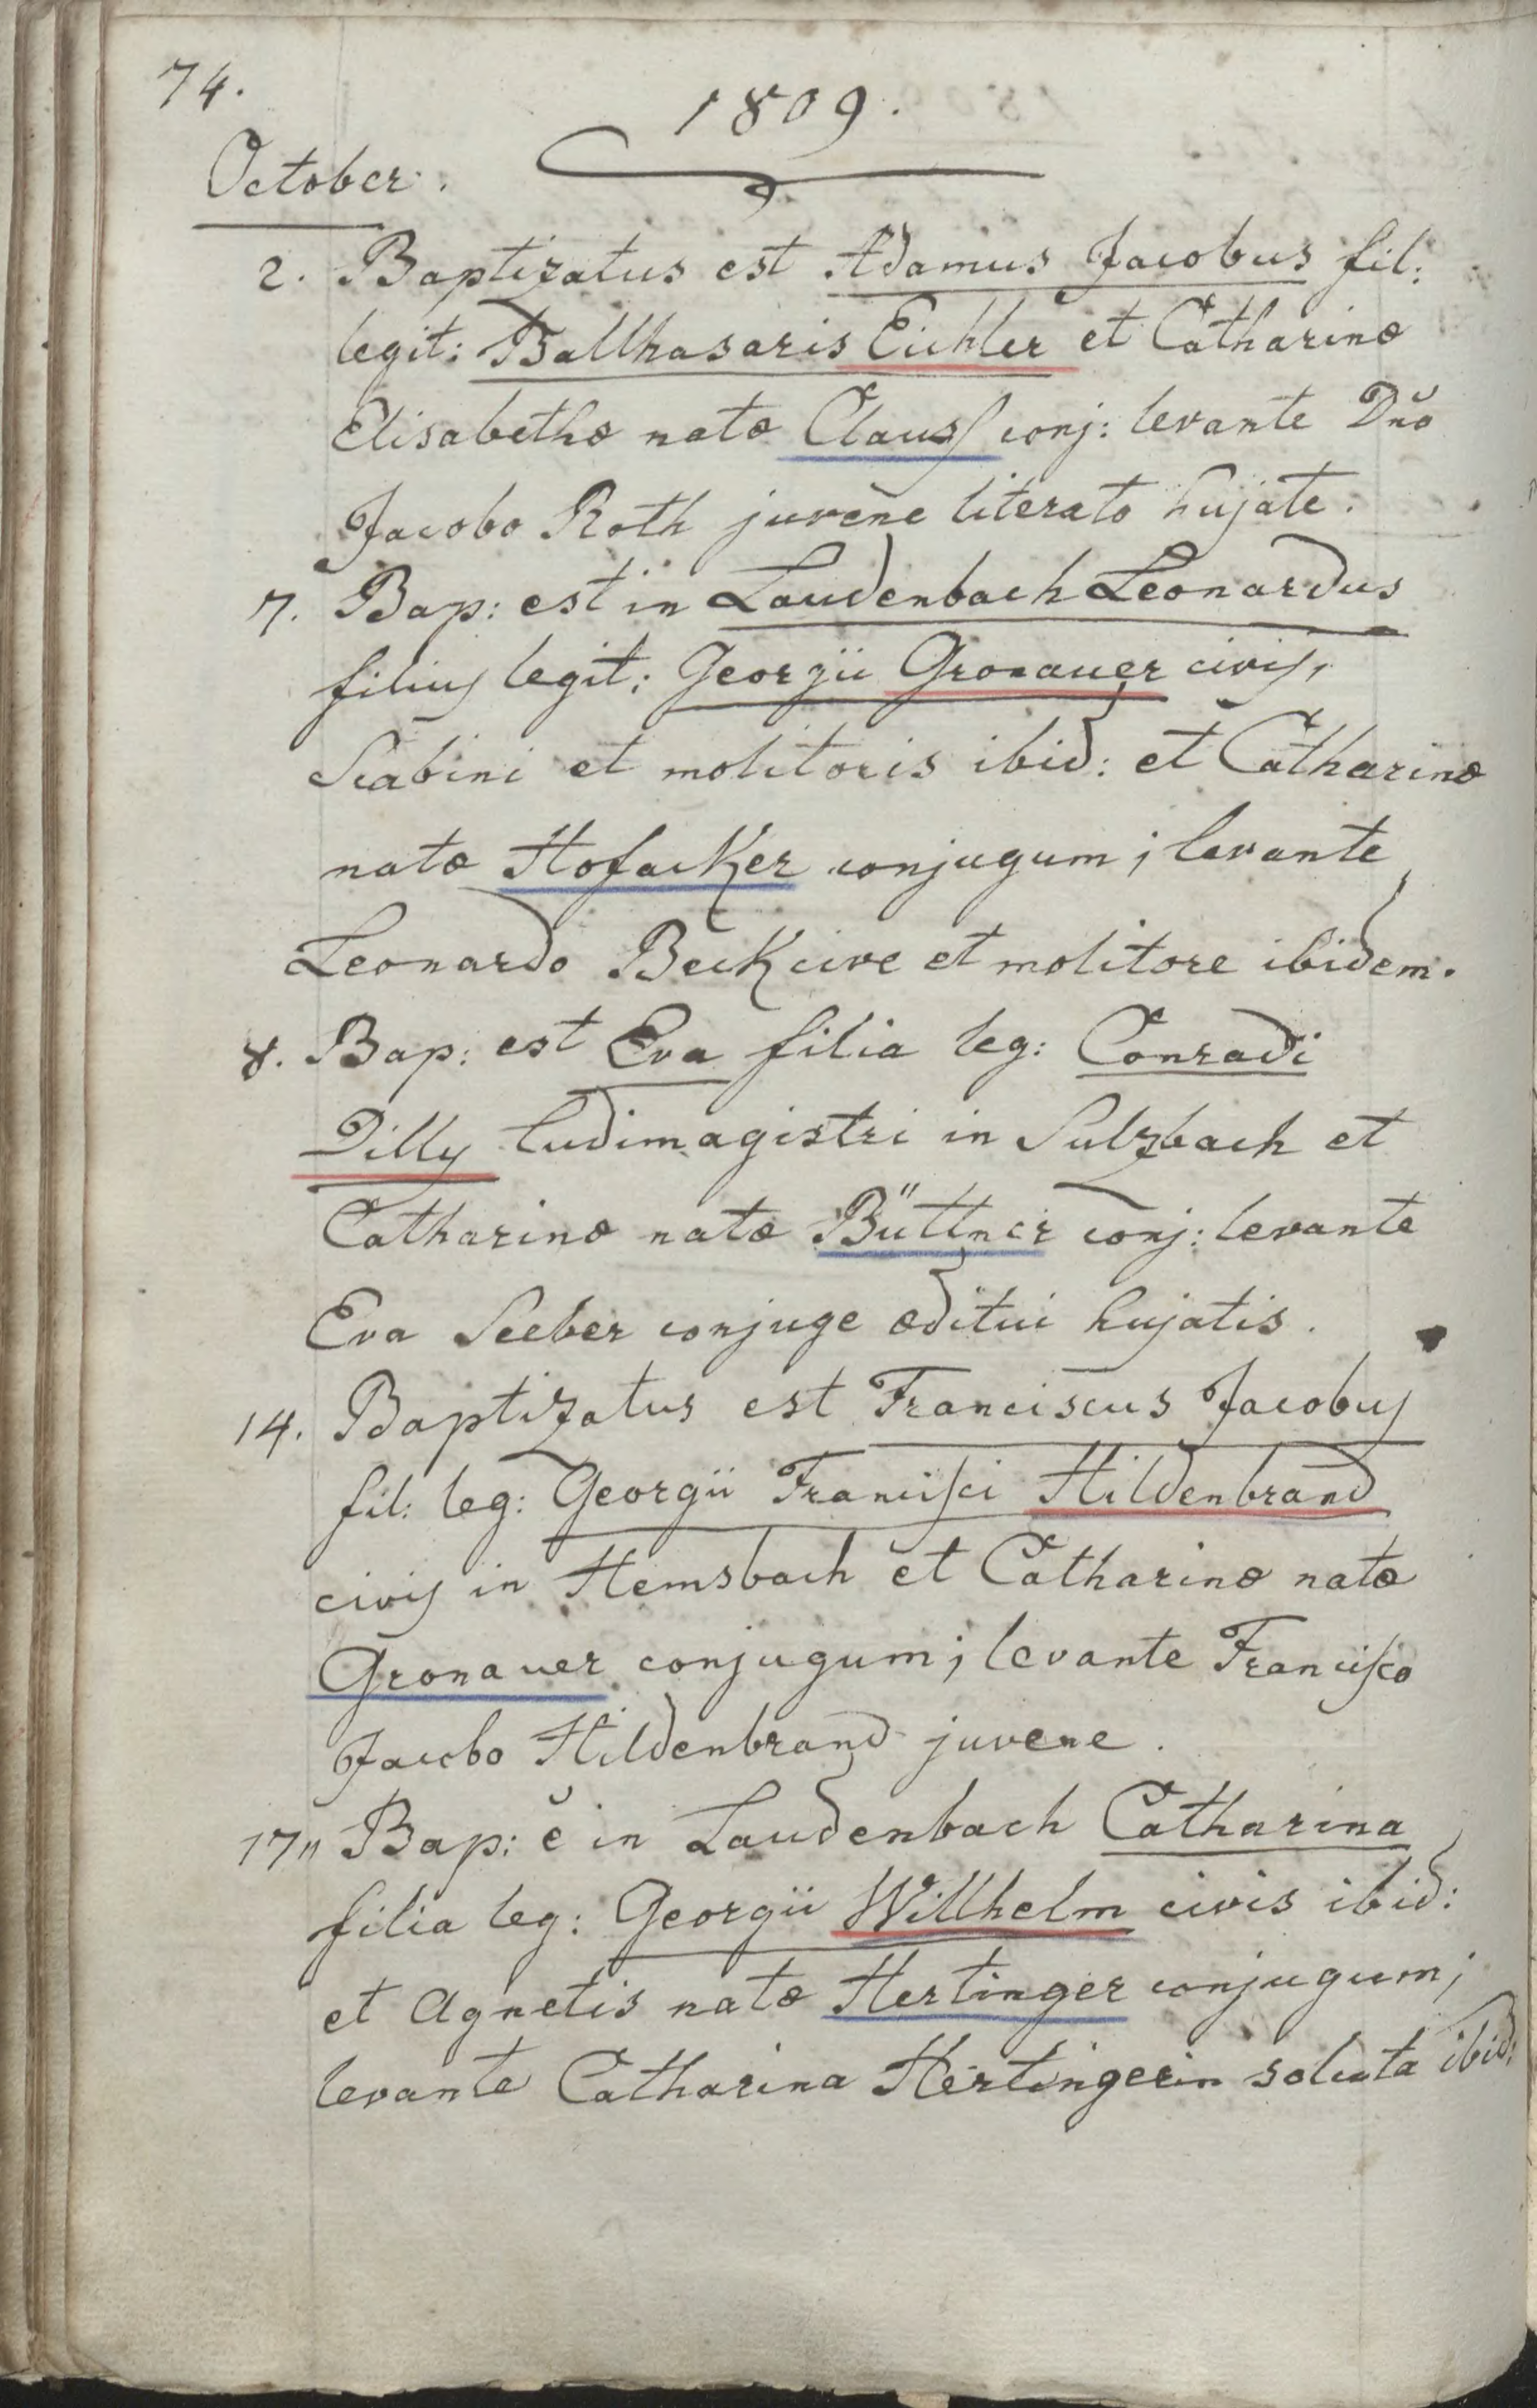 74.
1809.
October.
2. Baptizatus est Adamus Jacobus fil:
legit: Balthasaris Eichler et Catharinæ
Elisabethæ natæ Clauss conj: levante Dno
Jacobo Roth juvene literato hujate.
7. Bap: est in Laudenbach Leonardus
filius legit: Georgii Gronauer civis,
Scabini et molitoris ibid: et Catharinæ
natæ Hofacker conjugum; levante
Leonardo Beck cive et molitore ibidem.
8. Bap: est Eva filia leg: Conradi
Dilly ludimagistri in Sulzbach et
Catharinæ natæ Büttner conj: levante
Eva Seeber conjuge æditui hujatis.
14. Baptizatus est Franciscus Jacobus
fil: leg: Georgii Francisci Hildenbrand
civis in Hemsbach et Catharinæ natæ
Gronauer conjugum; levante Francisco
Jacobo Hildenbrand juvene.
17" Bap: ĕ in Laudenbach Catharina
filia leg: Georgii Willhelm civis ibid:
et Agnetis natæ Hertinger conjugum;
levante Catharina Hertingerin soluta ibid: